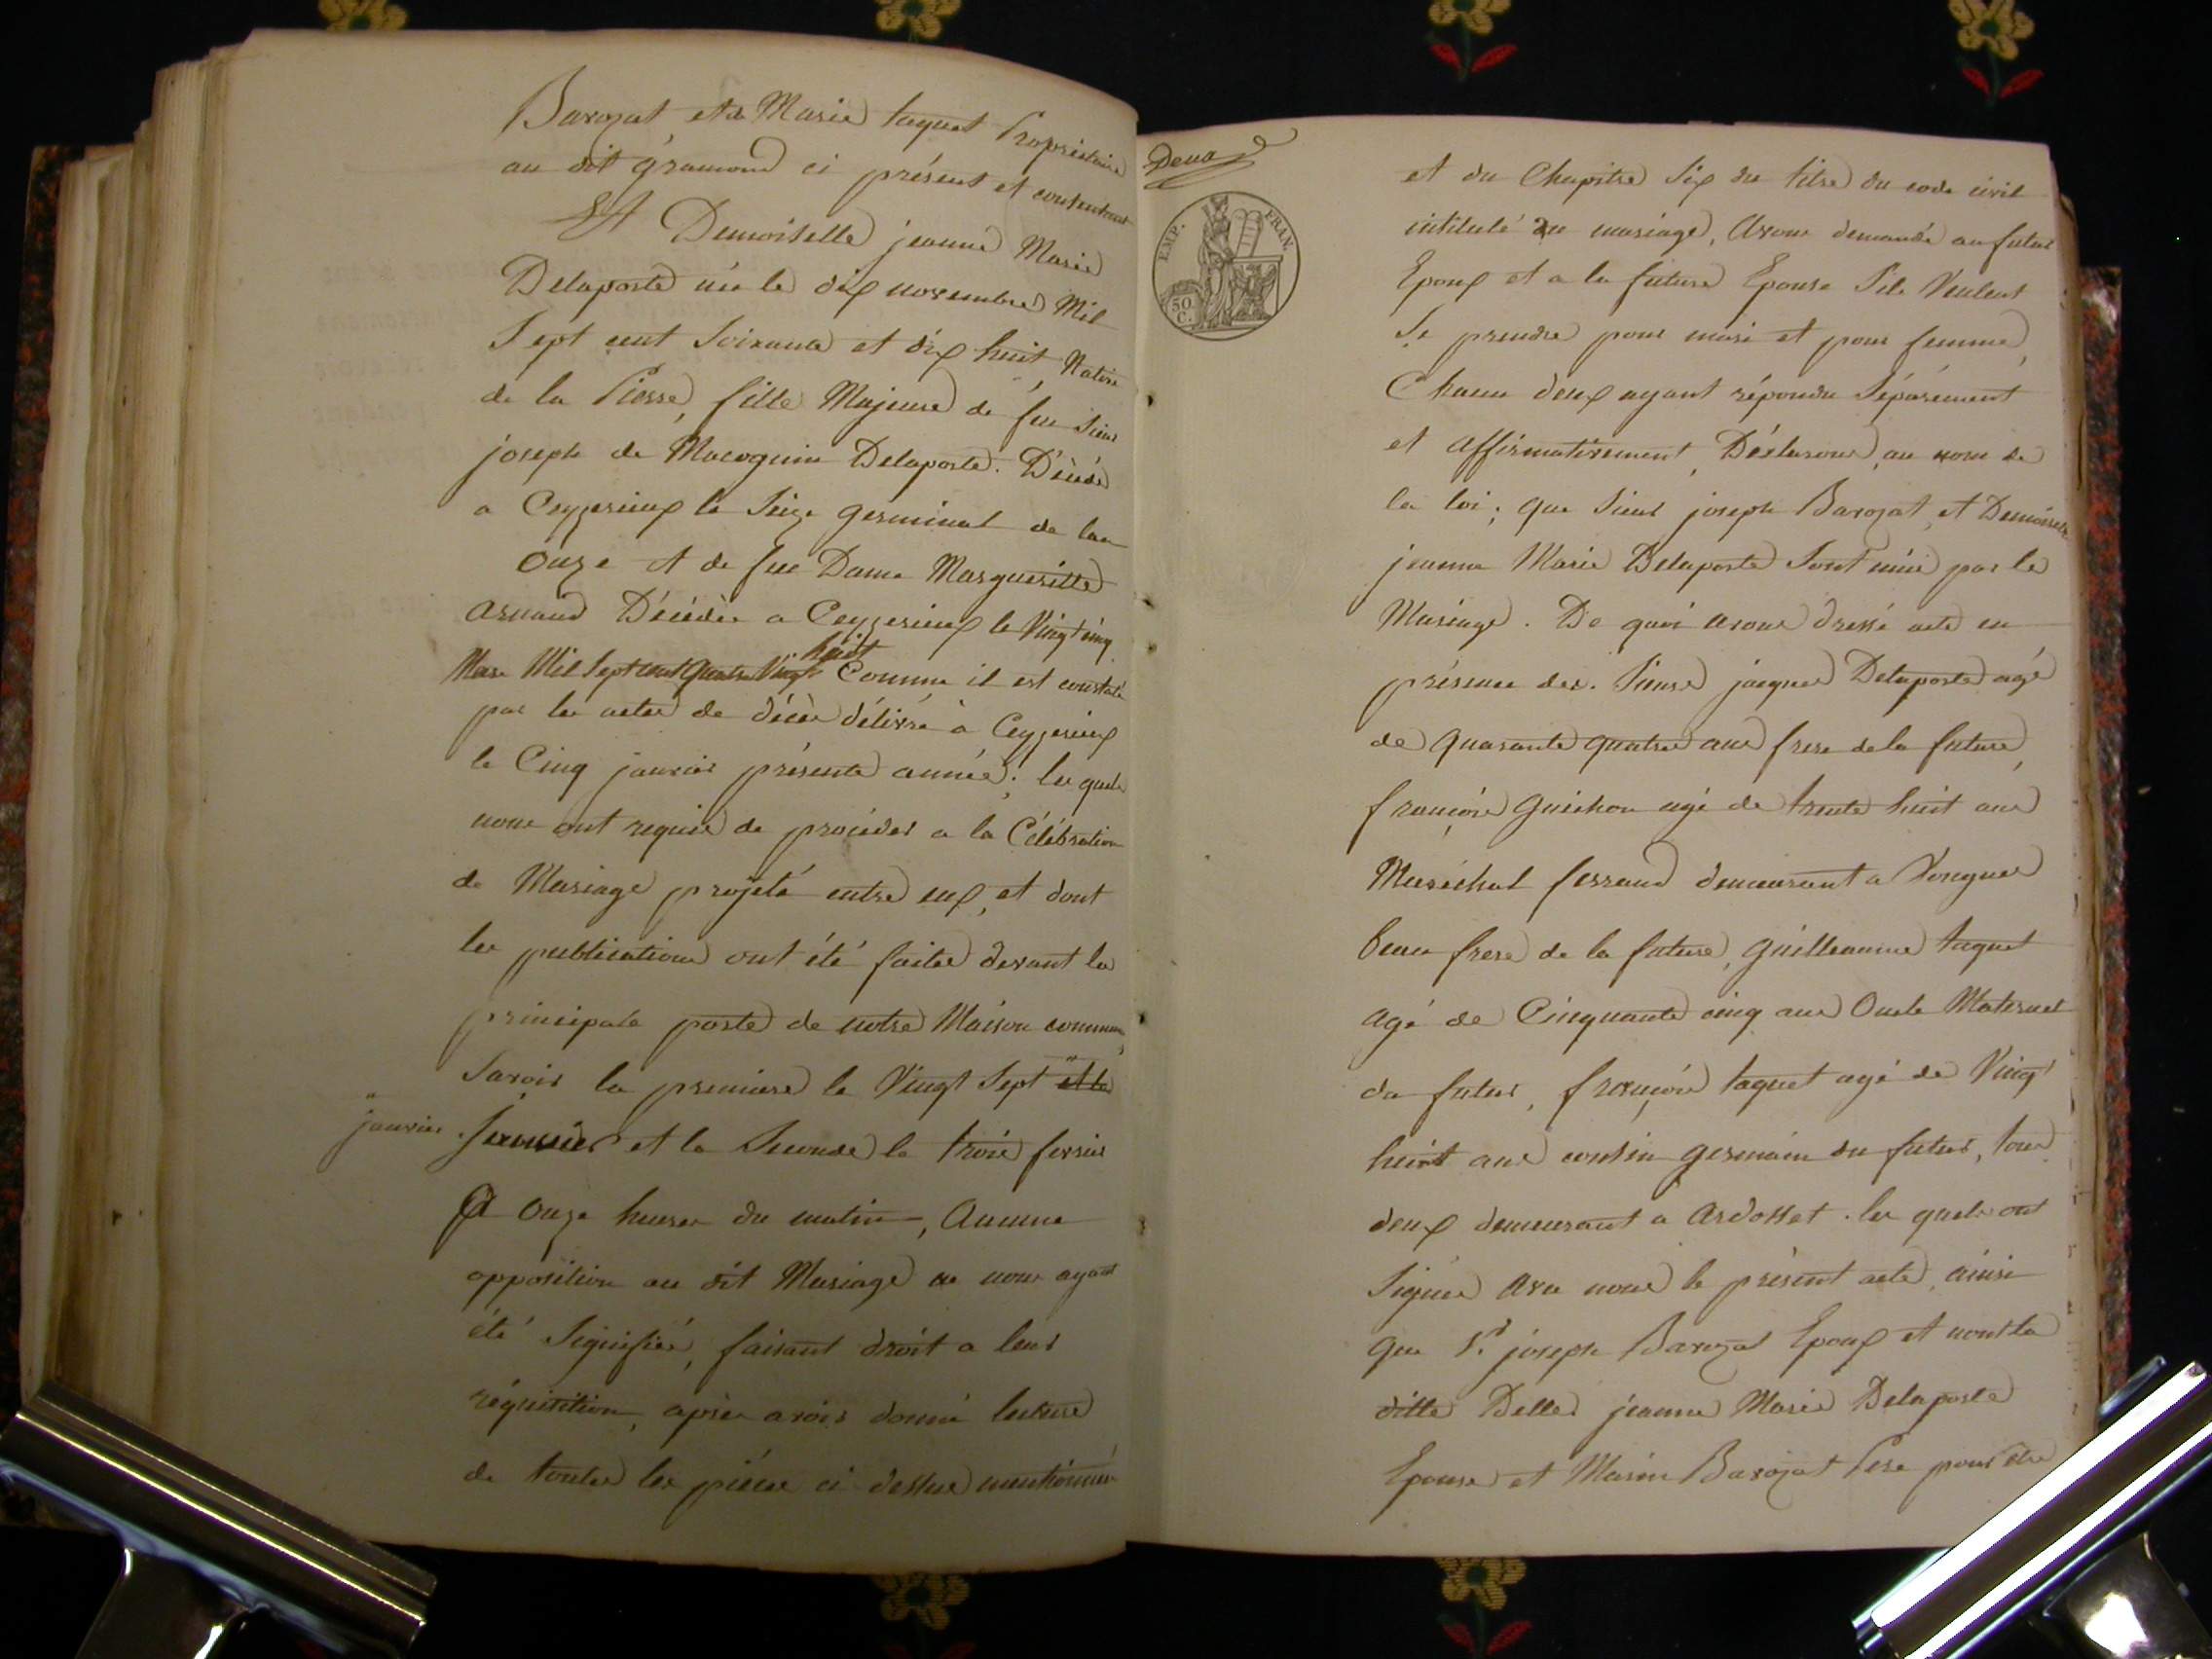 Barozat et de Marie taquet Propriétaire
au dit gramond ci présent et consentant
Et Demoiselle jeanne Marie
Delaporte née le dix novembre Mil
Sept cent Soixante et dix huit Native
de la Pierre, fille Majeure de feu Sieur
joseph de Macognin Delaporte. Décédé
a Ceyzerieux le Seize germinal de lan
Onze et de feue Dame Marguerittte
Arnaud Décédée a Ceyzerieux le Vingt cinq
huit
Mars Mil Sept cent quatre Vingt Comme il est constaté
par les actes de décès délivré à Ceyzerieux
le Cinq janvier présente année; les quels
nous ont requis de procéder a la Célébration
de Mariage projeté entre eux, et dont
les publications ont été faites devant la
principale porte de notre Maison commune,
Savoir la premiere le Vingt Sept et la
janvier. et la Seconde le trois fevrier
A Onze heures du matin, Aucune
opposition au dit Mariage ne nous ayant
été Signifiée, faisant droit a leur
réquisition, après avoir donné lecture
de toutes les pièces ci dessus mentionnées
Deux
EMP. FRAN.
50 C.
et du Chapitre Six du titre du code civil
intitulé du mariage, Avons demandé au futur
Epoux et a la future Epouse S'ils Veulent
Se prendre pour mari et pour femme,
Chacun deux ayant répondu Séparément
et affirmativement, Déclarons, au nom de
la loi; que Sieur joseph Barozat, et Demoiselle
jeanne Marie Delaporte Sont unis par le
Mariage. De quoi avons dressé acte en
présence des. Sieurs jacques Delaporte agé
de quarante quatre ans frere de la future,
françois guichon agé de trente huit ans
Maréchal ferrand demeurant a Vongnes
beau frere de la future, guilleaume taquet
agé de Cinquante cinq ans Oncle Maternel
du futur, françois taquet agé de Vingt
huit ans cousin germain du futur, tous
deux demeurant a Ardosset. les quels ont
Signés avec nous le présent acte, ainsi
que Sr. joseph Barozat Epoux et non la
ditte Delle. jeanne Marie Delaporte
Epouse et Marin Barozat Pere pour être